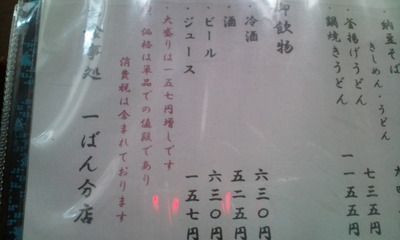 ・納豆そば
きしめん・うどん
・釜揚げうどん 七三五円
・鍋焼きうどん 一一五五円
御飲物
・冷酒 六三〇円
・酒 五二五円
・ビール 六三〇円
・ジュース 一五七円
大盛りは一五七円増しです
価格は単品での値段であり
消費税は含まれております
事処 一ばん分店